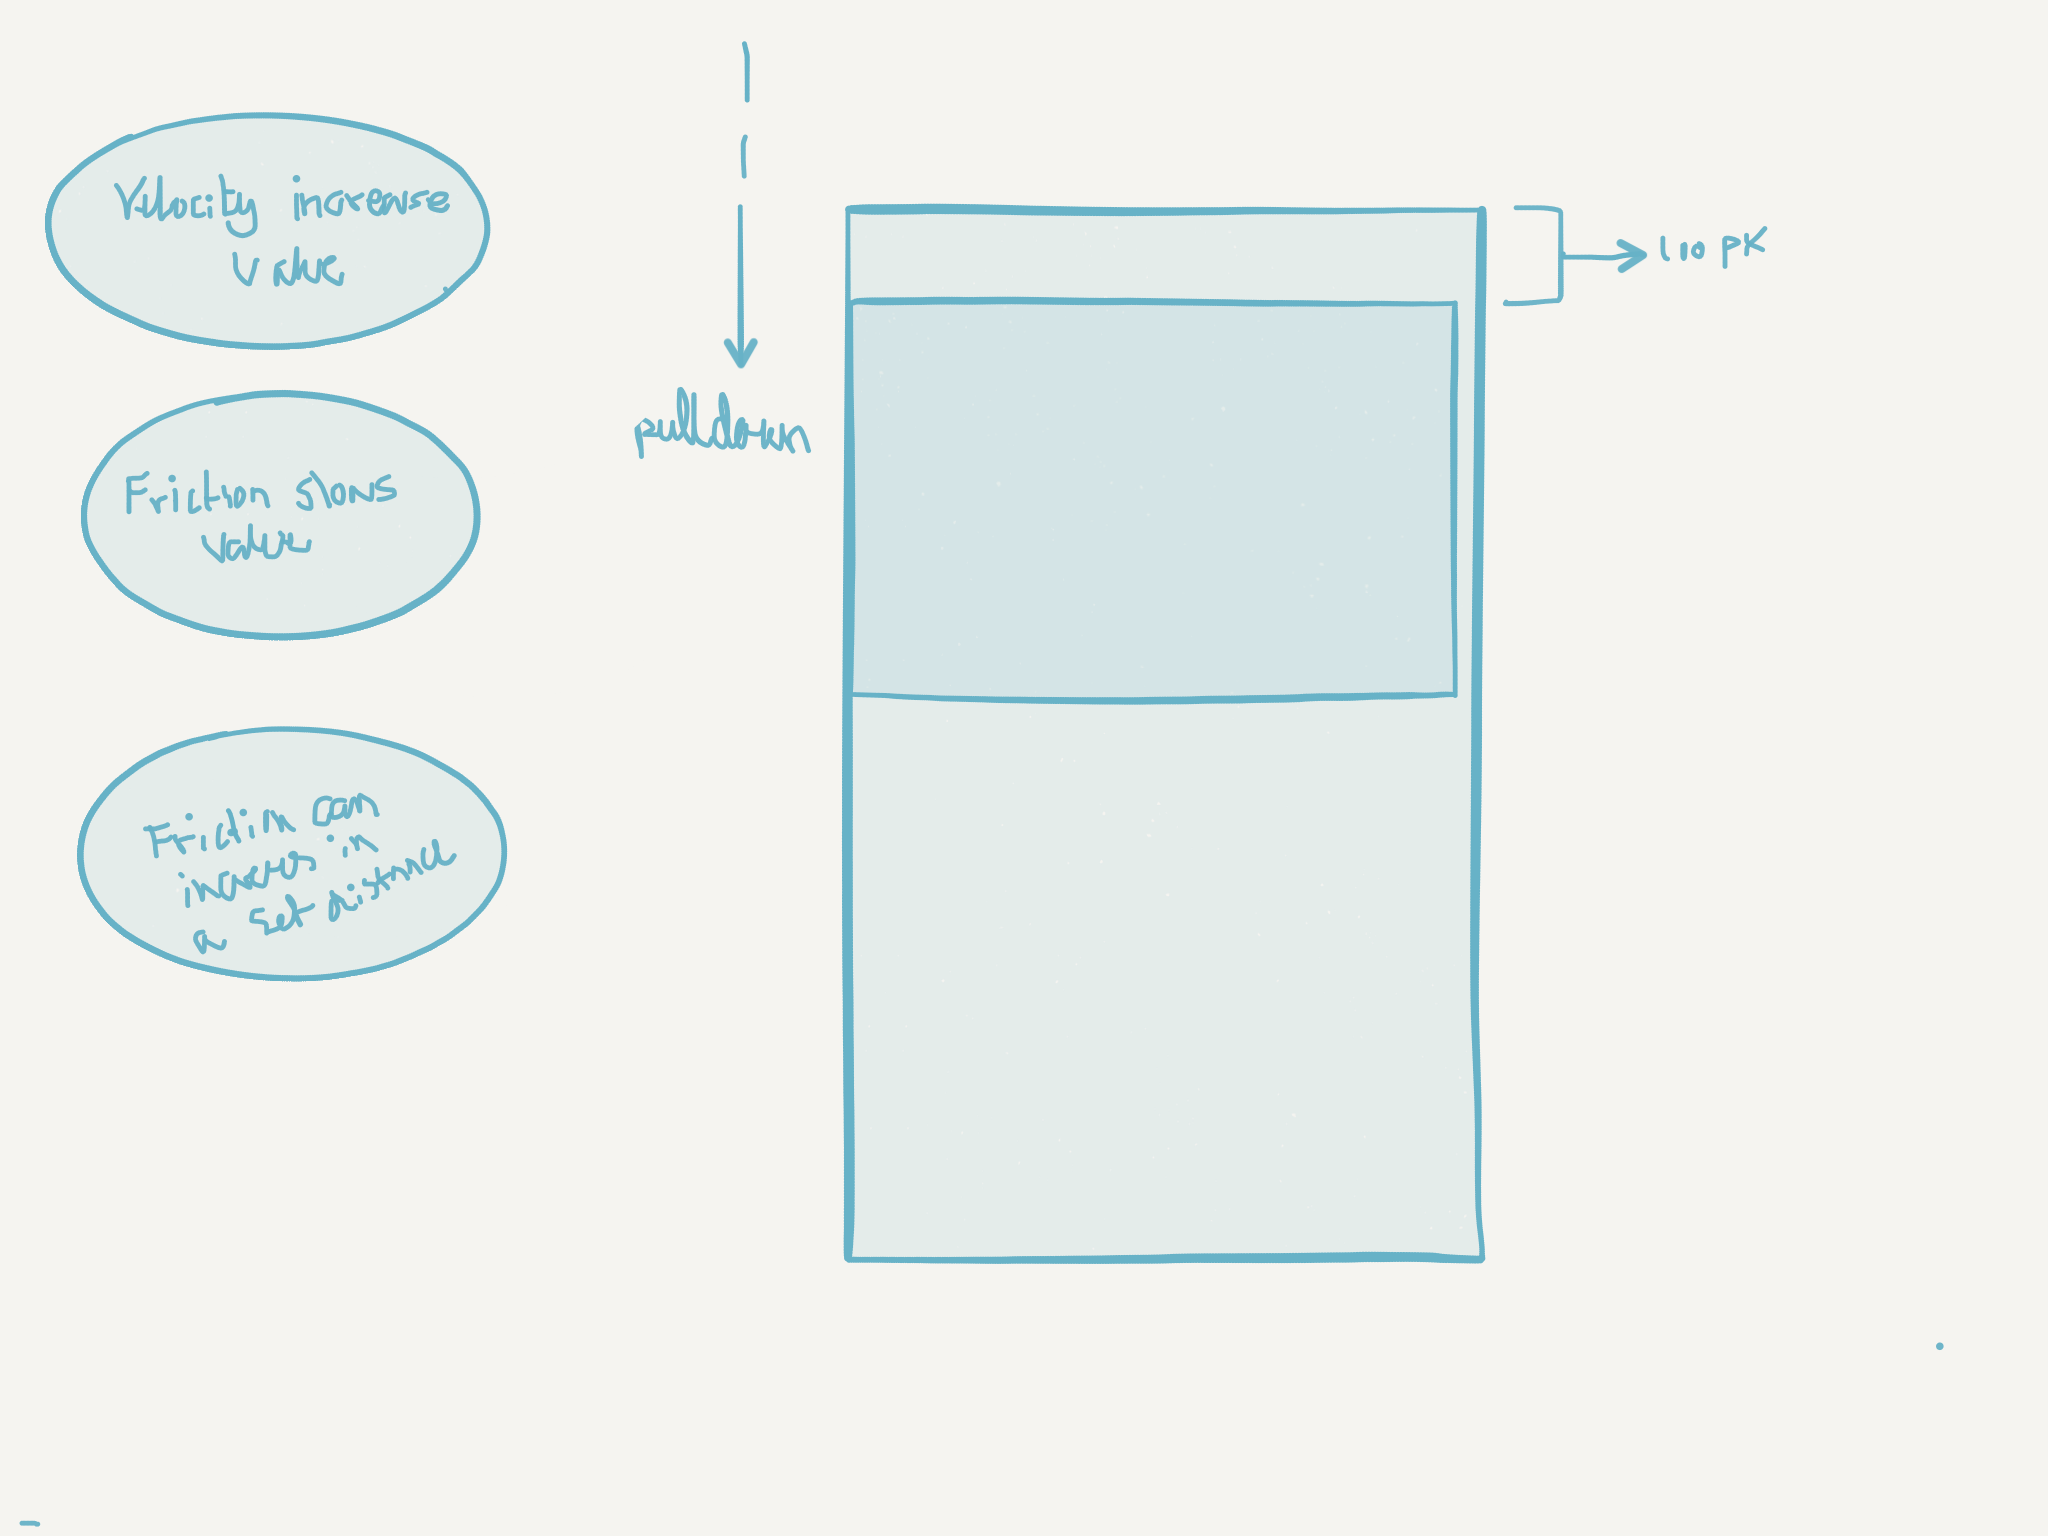 Velocity increase
value
Friction slows
value
Friction can
increase in
a set distance
pulldown
110 px